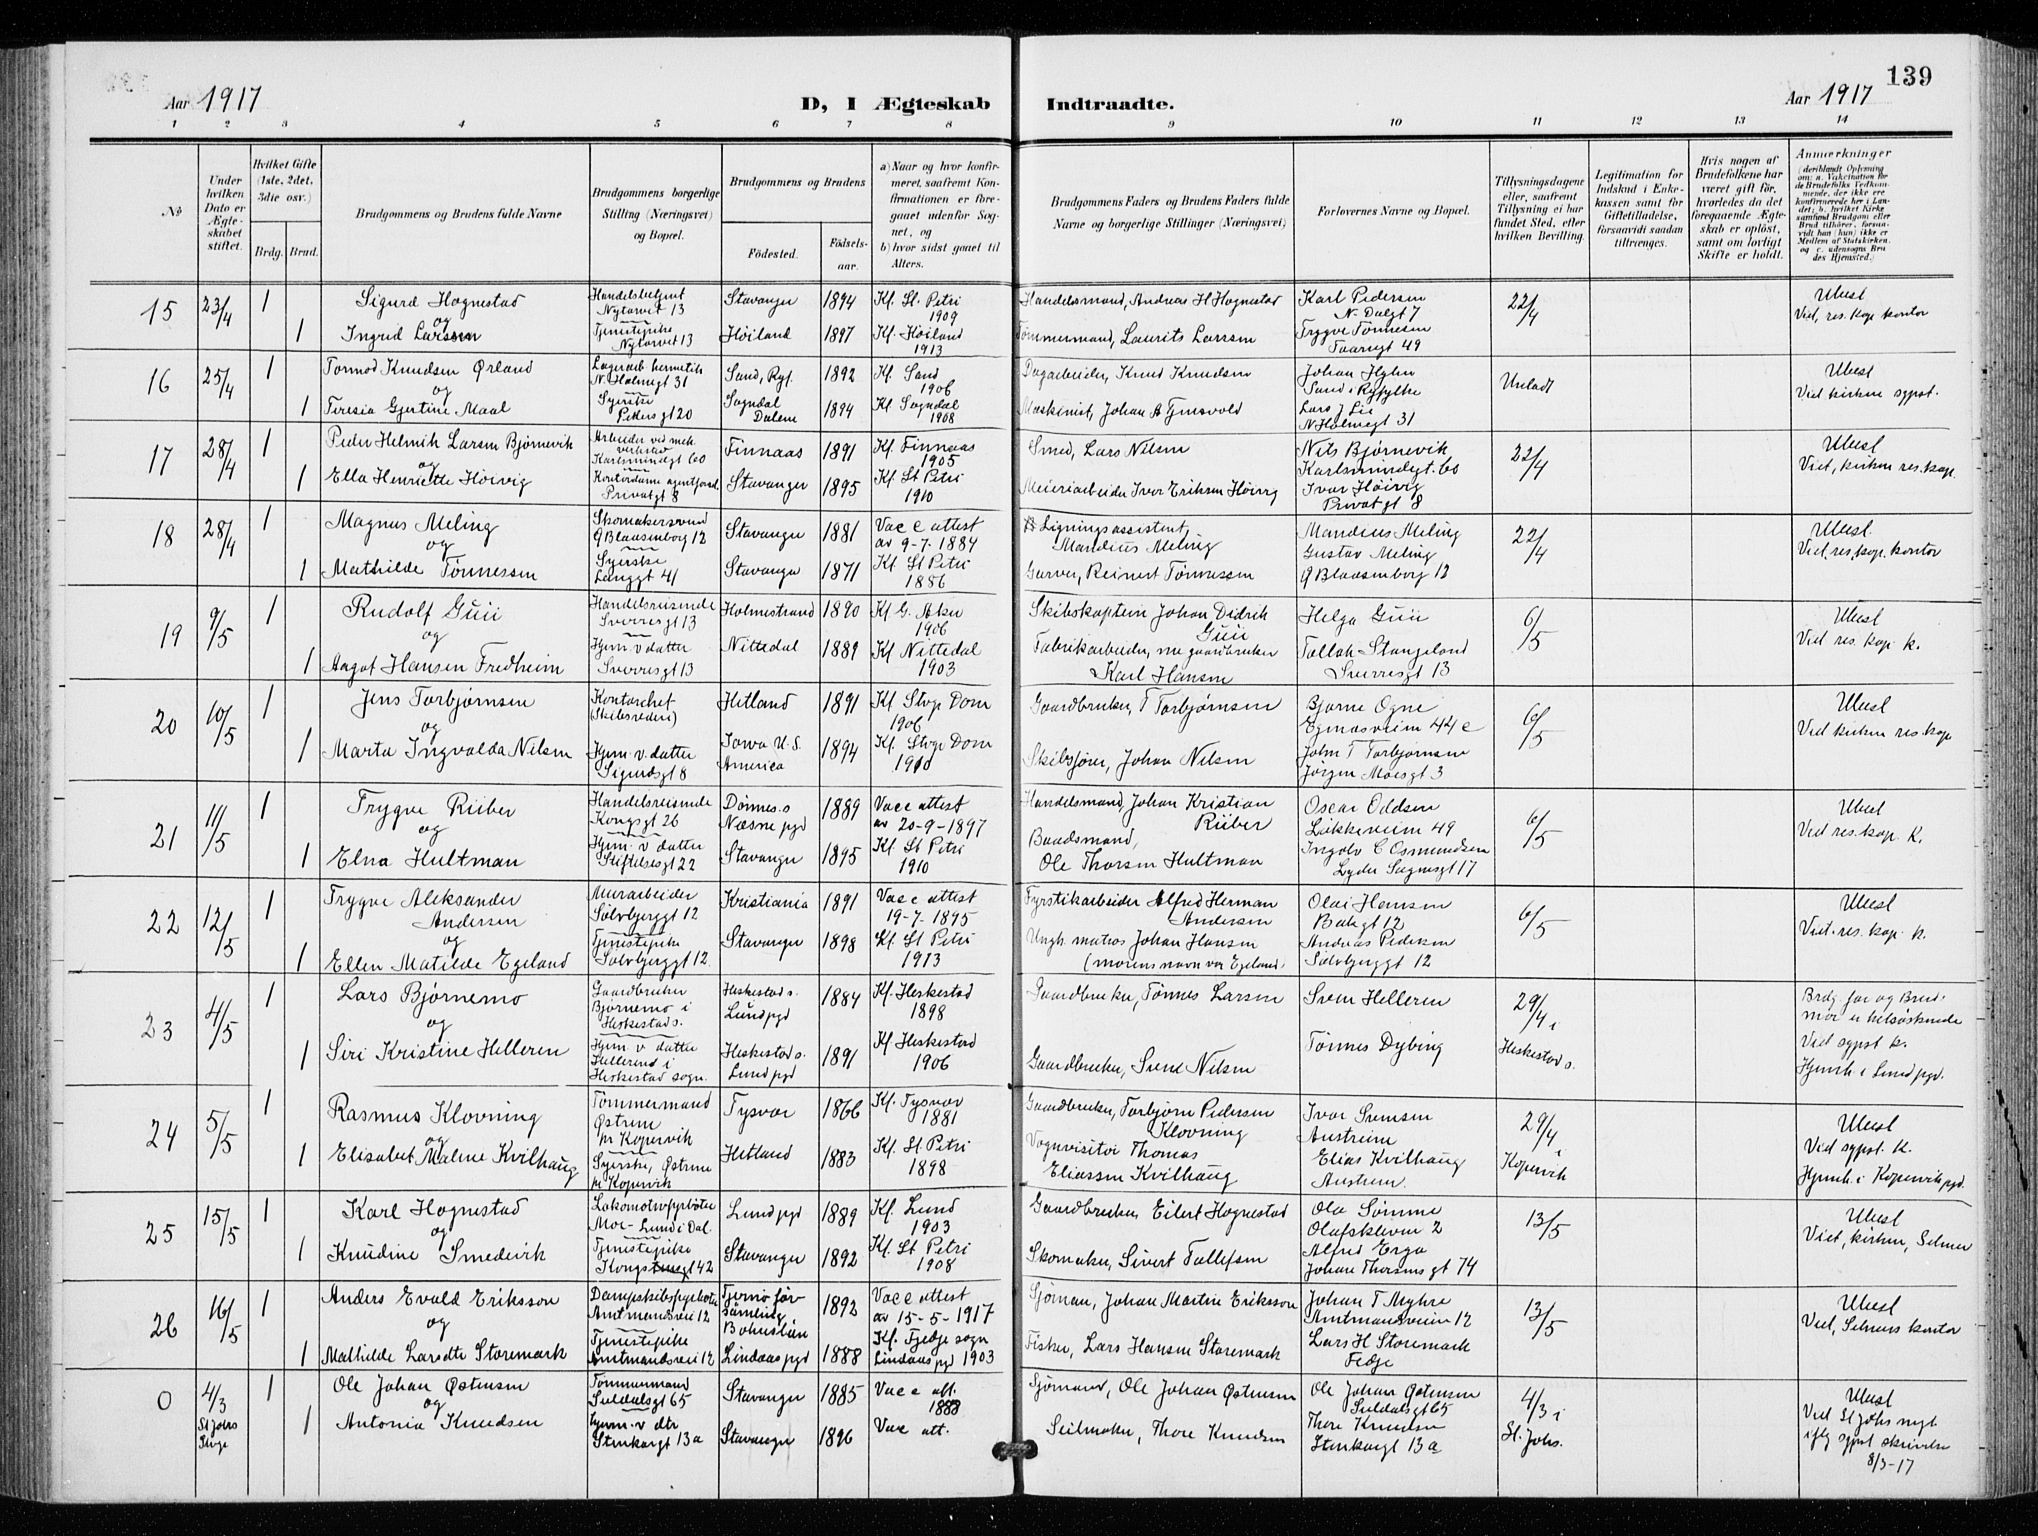 139
Aar 1917
D, I Ægteskab
Indtraadte.
Aar 1917
1 2 3 4 5 6 7 8 9 10 11 12 13 14
No
Under hvilken Dato er Ægteskabet stiftet.
Hvilket Gifte (1ste, 2det, 3die osv.)
Brdg. Brud.
Brudgommens og Brudens fulde Navne
Brudgommens borgerlige Stilling (Næringsvei) og Bopæl.
Brudgommens og Brudens
Födested.
Födsels-aar.
a) Naar og hvor konfirmeret, saafremt Konfirmationen er foregaaet udenfor Sognet, og
b) hvor sidst gaaet til Alters.
Brudgommens Faders og Brudens Faders fulde Navne og borgerlige Stillinger (Næringsvei)
Forlovernes Navne og Bopæl.
Tillysningsdagene eller, saafremt Tillysning ei har fundet Sted, efter hvilken Bevilling.
Legitimation for Indskud i Enkekassen samt for Giftetilladelse, forsaavidt saadan tiltrænges.
Hvis nogen af Brudefolkene har været gift för, hvorledes da det foregaaende Ægteskab er oplöst, samt om lovligt Skifte er holdt.
Anmærkninger
(deriblandt Oplysning om: a. Vakcination for de Brudefolks Vedkommende, der ikke ere konfirmerede her i Landet; b. hvilket Kirkesamfund Brudgom eller Brud tilhörer, forsaavidt han (hun) ikke er Medlem af Statskirken, og c. udensogns Brudes Hjemsted.)
15 23/4 1 Sigurd Hognestad Handelsbetjent Nytorvet 13 Stavanger 1894 Kf. St. Petri 1909 Handelsmand, Andreas H Hognestad Karl Pedersen N. Dalgt 7 22/4 Ubesl
og
1 Ingrid Larssen Tjenestepike Nytorvet 13 Høiland 1897 Kf. Høiland 1913 Tømmermand, Laurits Larssen Trygve Tønnesen 49 Vied, res. kap kontor
16 25/4 1 Tormod Knudsen Ørland Lagerarb hermetik N. Holmegt 31 Sand, Ryf. 1892 Kf. Sand 1906 Dagarbeider, Knud Knudsen Johan Sand i Ryfylke Unladt Ubesl
og
1 Teresia Gjertine Maal Syerske Pedersgt 20 Sogndal Dalene 1894 Kf Sogndal 1908 Maskinist, Johan A Lars J Lie N Holmegt 31 Vied kirken sypst.
17 28/4 1 Peder Helmik Larsen Bjørnevik Arbeider ved mek. verksted Karlsmindegt 60 Finnaas 1891 Kf. Finnaas 1905 Smed, Lars Nilsen Nils Bjørnevik Karlsmindegt. 60 22/4 Ubesl
og
1 Ella Henriette Høivig Kontordame agentforr. Privatgt 8 Stavanger 1895 Kf. St Petri 1910 Meieriarbeider Ivar Eriksen Høivig Ivar Høivig Privatgt 8 Viet, kirken res. kap.
18 28/4 1 Magnus Meling Skomakersvend Ø Blaasenborg 12 Stavanger 1881 Vacc attest av 9-7-1884 Ligningsassistent, Mandius Meling Mandius Meling 22/4 Ubesl.
og
1 Mathilde Tønnessen Syerske Langgt 41 Stavanger 1871 Kf St Petri 1886 Garver, Reinert Tønnessen Gustav Meling Ø Blaasenborg 12 Vied, res. kap. kontor
19 9/5 1 Rudolf Guii Handelsreisende Sverresgt 13 Holmestrand 1890 Kf G. Aker 1906 Skibskaptein Johan Didrik Guii Helga Guii 6/5 Ubesl
og
1 Aagot Hansen Fredheim Hjem. v datter Sverresgt 13 Nittedal 1889 Kf Nittedal 1903 Fabrikarbeider, nu gaardbruker Karl Hansen Tallak Stangeland Sverresgt 13 Vied res. kap. k.
20 10/5 1 Jens Torbjørnsen Kontorchef (Skibsrederi) Hetland 1891 Kf Stvgr Dom 1906 Gaardbruker, T Torbjørnsen Bjarne Ogne Egenæsveien 44 c 6/5 Ubesl
og
1 Marta Ingvalda Nilsen Hjem. v. datter Sigurdsgt 8 Iowa U. S. America 1894 Kf. Stvgr Dom 1910 Skibsfører, Johan Nilsen John T Torbjørnsen Jørgen Moesgt 3 Vied kirken res. kap
21 11/5 1 Trygve Riiber Handelsreisende Kongsgt 26 Dønnes s Næsne pgd 1889 Vacc attest av 20-9-1897 Handelsmand, Johan Kristian Riiber Oscar Oddsen Løkkeveien 49 6/5 Ubesl
og
1 Elna Hultman Hjem. v datter Stiftelsesgt 22 Stavanger 1895 Kf St Petri 1910 Baadsmand, Ole Thorsen Hultman Ingolv C Osmundsen Lyder Sagensgt 17 Vied res. kap. k.
22 12/5 1 Trygve Aleksander Andersen Murarbeider Sølvbjerggt 12 Kristiania 1891 Vacc attest 19-7-1895 Fyrstikarbeider Alfred Herman Andersen Olai Hansen Bakegt 12 6/5 Ubesl
og
1 Ellen Matilde Egeland Tjenestepike Sølvbjerggt 12. Stavanger 1898 Kf. St Petri 1913 Ungk. matros Johan Hansen (morens navn var Egeland. Andreas Pedersen Sølvbjerggt 12 Viet. res. kap. k.
23 4/5 1 Lars Bjørnemo Gaardbruker Bjørnemo i Heskestad s. Heskestad s. Lund pgd 1884 Kf. Heskestad 1898 Gaardbruker, Tønnes Larsen Sven Helleren 29/4 i Heskestad s. Brdg far og Brud. mor er helsøskende
og
1 Siri Kristine Helleren Hjem v datter Helleren i Heskestad sogn. Heskestad s. Lund pgd 1891 Kf Heskestad 1906 Gaardbruker, Svend Nilsen Tønnes Dybing Vied sypst k. Hjemh. i Lund pgd.
24 5/5 1 Rasmus Klovning Tømmermand Østrem pr Kopervik Tysvær 1866 Kf. Tysvær 1881 Gaardbruker, Torbjørn Pedersen Klovning Ivar Svensen Austreim 29/4 i Kopervik Ubesl
og
1 Elisabet Maline Kvilhaug Syerske, Østrem pr Kopervik Hetland 1883 Kf. St Petri 1898 Vognvisitør Thomas Eliassen Kvilhaug Elias Kvilhaug Austrem. Vied sypst. k. Hjemh. i Kopervik pgd.
25 15/5 1 Karl Hognestad Lokomotivfyrbøter Moi-Lund i Dal. Lund pgd 1889 Kf. Lund 1903 Gaardbruker, Eilert Hognestad Ola Sømme Olafskleven 2 13/5 Ubesl
og
1 Knudine Smedevik Tjenestepike Kongsgt 42 Stavanger 1892 Kf. St Petri 1908 Skomaker, Sivert Tollefsen Alfred Erga Johan Thorsensgt 74 Viet, kirken, Selmer
26 16/5 1 Anders Evald Eriksson Dampskibsfyrbøter Amtmandsvei 12 Tjernø församling Bohuslän 1892 Vacc attest av 15-5-1917 Sjöman, Johan Martin Eriksson Johan T Myhre Amtmandsveien 12 13/5 Ubesl
og
1 Mathilde Larsdtr Storemark Tjenestepike Amtmandsvei 12 Lindaas pgd 1888 Kf. Fedje sogn Lindaas pgd 1903 Fisker, Lars Hansen Storemark Lars H Storemark Fedje Vied, Selmers kontor
0 4/3 St Johs Stvgr 1 Ole Johan Østensen Tømmermand Suldalsgt 65 Stavanger 1885 Vacc att. 1888 Sjømand, Ole Johan Østensen Ole Johan Østensen Suldalsgt 65 4/3 i St. Johs. Ubesl
og
1 Antonia Knudsen Hjem. v dtr Stenkargt 13a Stavanger 1896 Vac att. Seilmaker, Thore Knudsen Thore Knudsen Stenkargt 13a Vied St Johs mgt iflg sypst skrivelse 8/3-17